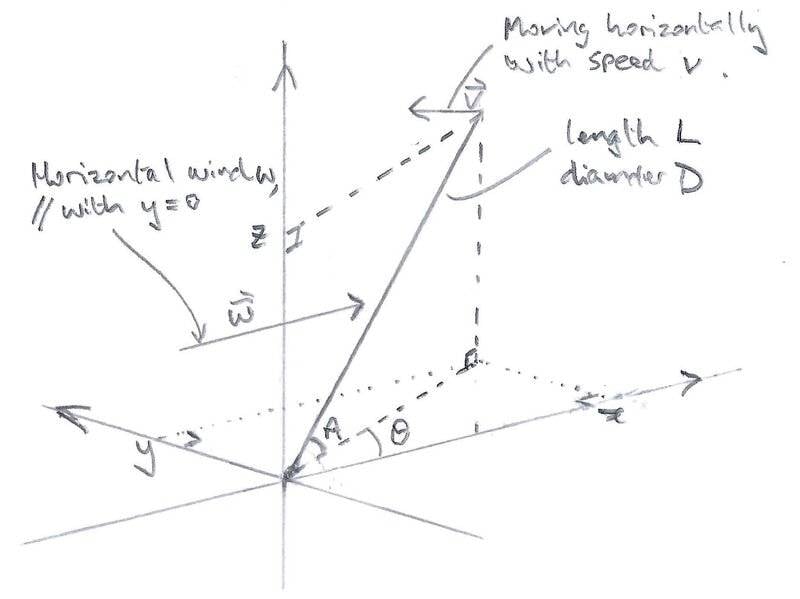 Moving horizontally
with speed v.
v⃗
length L
diameter D
Horizontal wind w,
// with y=0
z
w⃗
A
θ
x
y